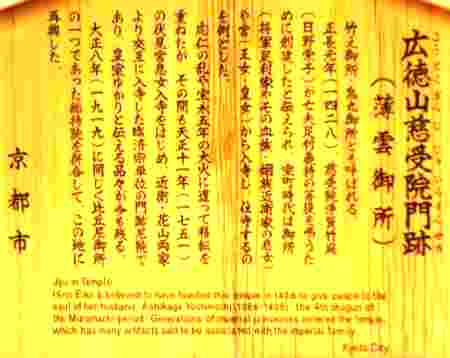 広徳山慈受院門跡
(薄雲御所)
竹之御所、烏丸御所とも呼ばれる。
正長元年(一四二八) 慈受院浄賢竹庭
(日野栄子)が亡夫足利義持の菩提を弔うた
めに創建したと伝えられ、室町時代は御所
(将軍足利家やその血族・姻族近衛家の息女)
や宮(王女・皇女)から入寺し、住持するの
を例とした。
応仁の乱や宝永五年の大火に遭って移転を
重ねたが、その間も天正十一年(一七五一)
の伏見宮息女入寺をはじめ、近衛・花山両家
より交互に入寺した臨済宗単立の門跡尼院で
あり、皇室ゆかりと伝える品々が今も残る。
大正八年(一九一九)に同じく比丘尼御所
の一つであった総持院を併合して、この地に
再興した。
京都市
Jiju in Temple
Hino Eiko is believed to have founded this temple in 1428 to give peace to the
soul of her husband, Ashikaga Yoshimochi (1386-1428), the 4th shogun of
the Muromachi period. Generations of imperial princesses entered the temple,
which has many artifacts said to be associated with the imperial family.
Kyoto City